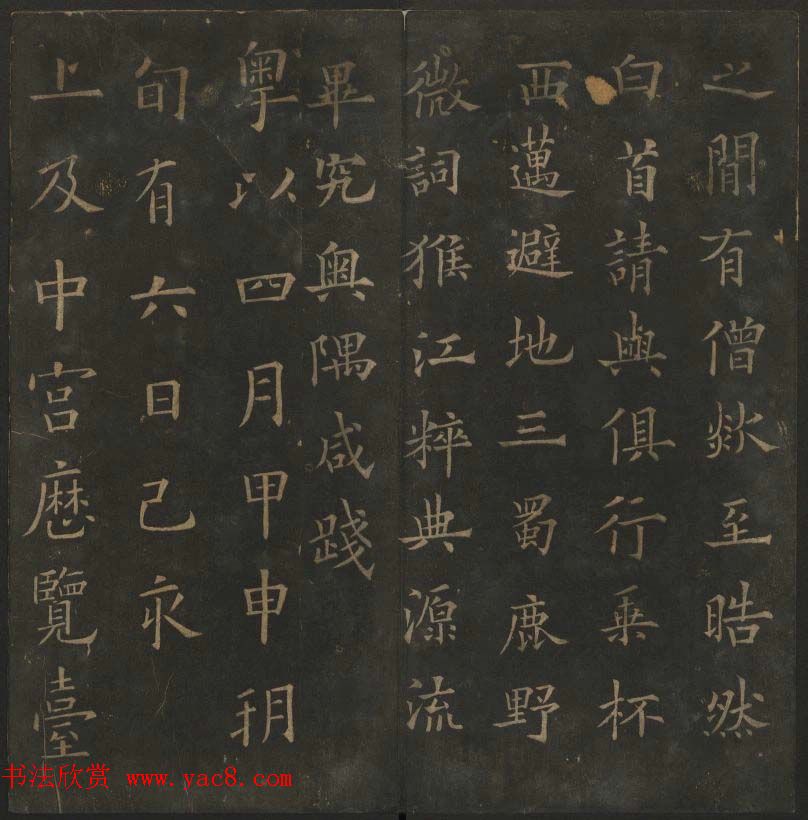 之間有僧歘至皓然
白首請與俱行乗杯
西邁避地三蜀鹿野
微詞猴江粹典源流
畢究奥隅咸踐
粤以四月甲申朔
旬有六日己亥
上及中宫歷覽臺
书法欣赏 www.yac8.com